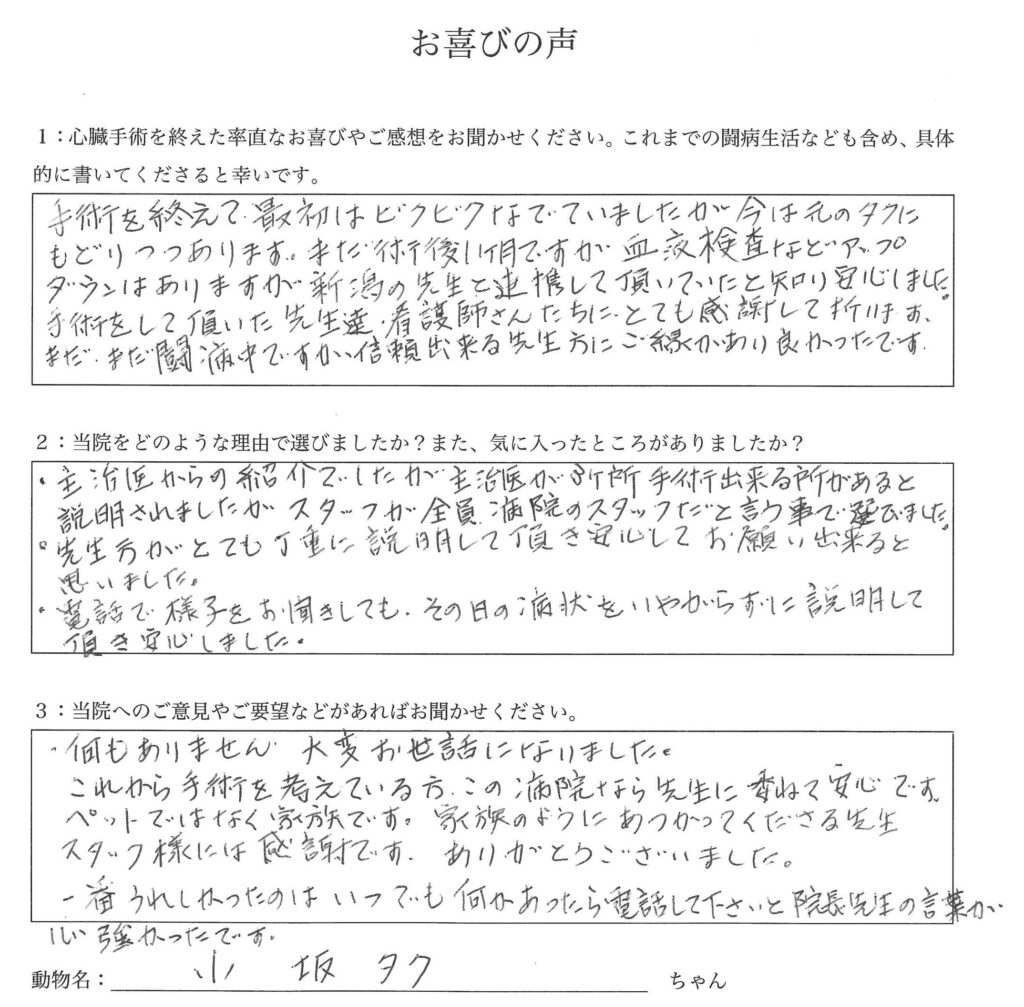 お喜びの声
１：心臓手術を終えた率直なお喜びやご感想をお聞かせください。これまでの闘病生活なども含め、具体
的に書いてくださると幸いです。
手術を終えて、最初はビクビクなでていましたが今は元のタクに
もどりつつあります。まだ術後1ヶ月ですが血液検査などアップ
ダウンはありますが新潟の先生と連携して頂いていたと知り安心しました。
手術をして頂いた先生達、看護師さんたちにとても感謝して折ります、
まだ、まだ闘病中ですが、信頼出来る先生方にご縁があり良かったです。
２：当院をどのような理由で選びましたか？また、気に入ったところがありましたか？
・主治医からの紹介でしたが主治医が3ヶ所手術出来る所があると
説明されましたがスタッフが全員病院のスタッフだと言う事で選びました。
・先生方がとても丁重に説明して頂き安心してお願い出来ると
思いました。
・電話で様子をお聞きしても、その日の病状をいやがらずに説明して
頂き安心しました。
３：当院へのご意見やご要望などがあればお聞かせください。
・何もありません 大変お世話になりました。
これから手術を考えている方、この病院なら先生に委ねて安心です。
ペットではなく家族です。家族のようにあつかってくださる先生
スタッフ様には感謝です。ありがとうございました。
一番うれしかったのはいつでも何かあったら電話して下さいと院長先生の言葉が
心強かったです。
動物名： 小坂タク ちゃん